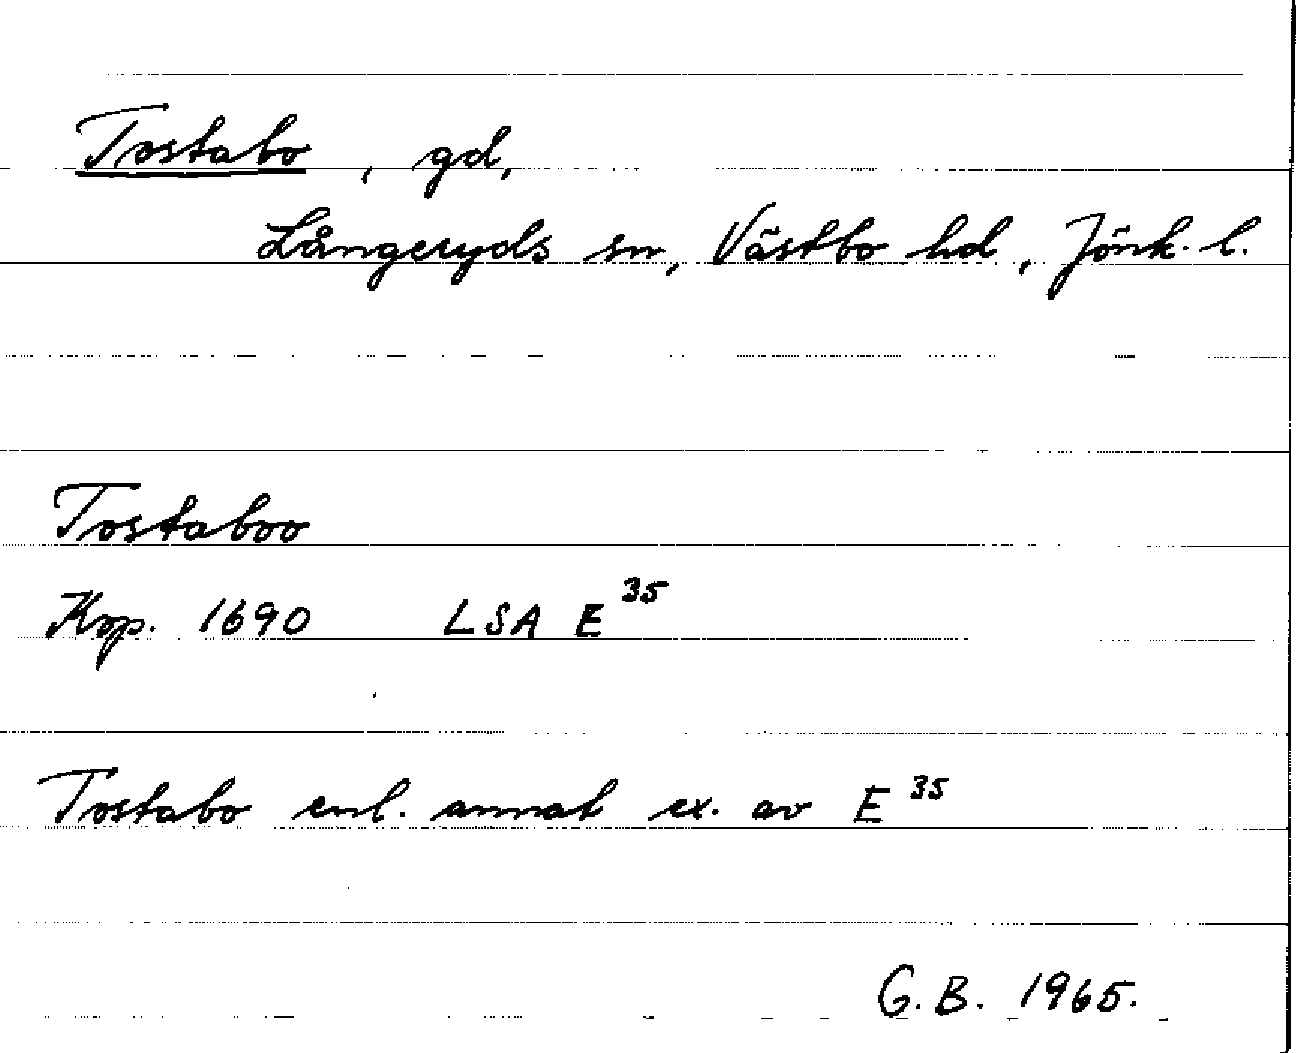 Tostabo, gd,
Långeryds sn, Västbo hd, Jönk. l.
Tostaboo
Kop. 1690 LSA E 35
Tostabo enl. annat ex. av E 35
G.B. 1965.